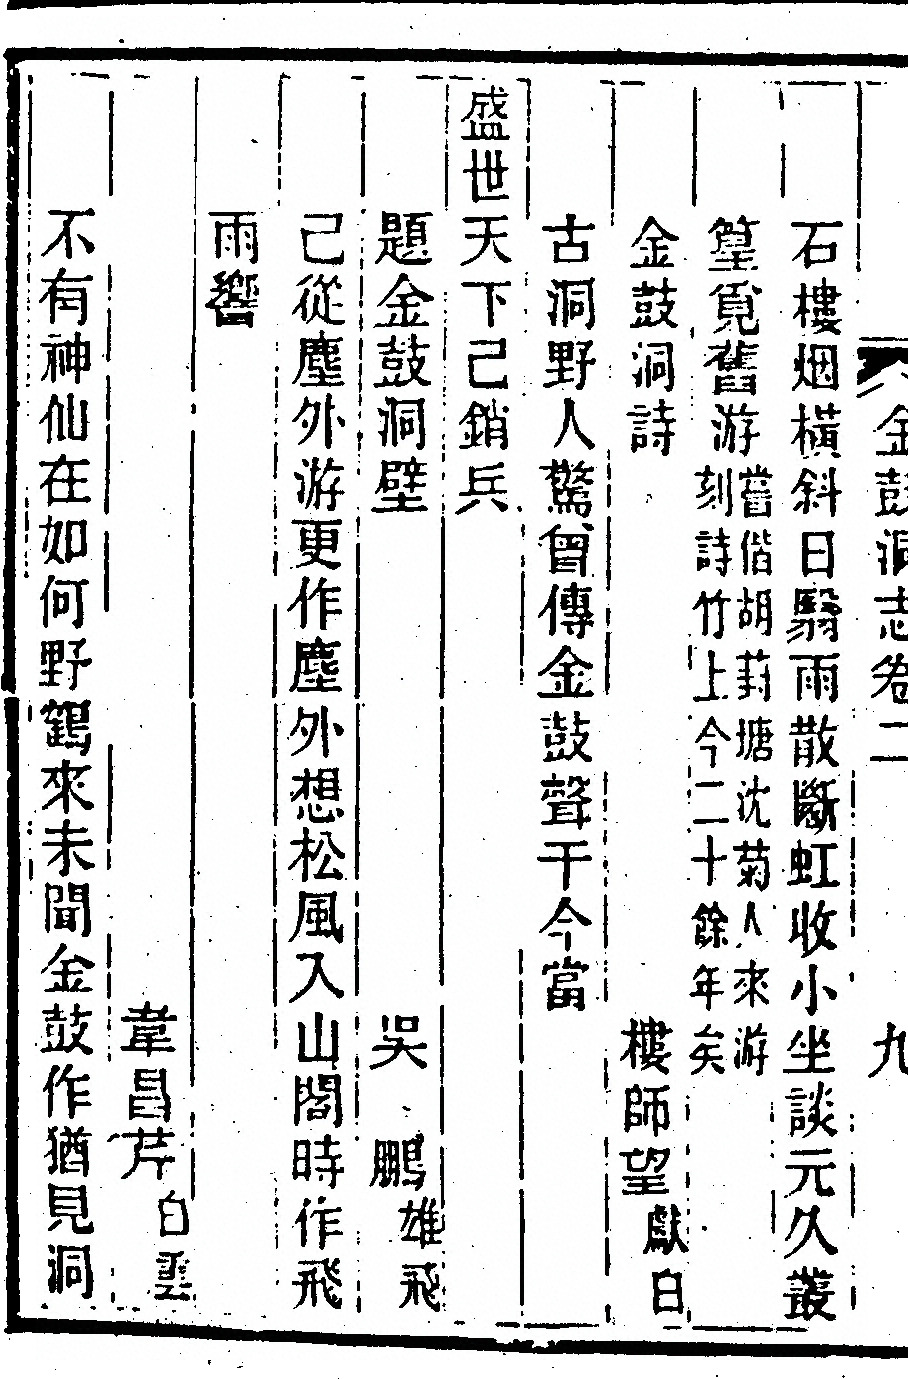 金鼓洞志卷二　九
石樓烟橫斜日翳雨散斷虹收小坐談元久叢
篁覓舊游當偕胡葑塘沈菊人來游刻詩竹上今二十餘年矣
金鼓洞詩　樓師望獻白
古洞野人驚曾傳金鼓聲干今當
盛世天下已銷兵
題金鼓洞壁　吳鵬雄飛
已從塵外游更作塵外想松風入山閣時作飛
雨響
韋昌芹白雲
不有神仙在如何野鶴來未聞金鼓作猶見洞